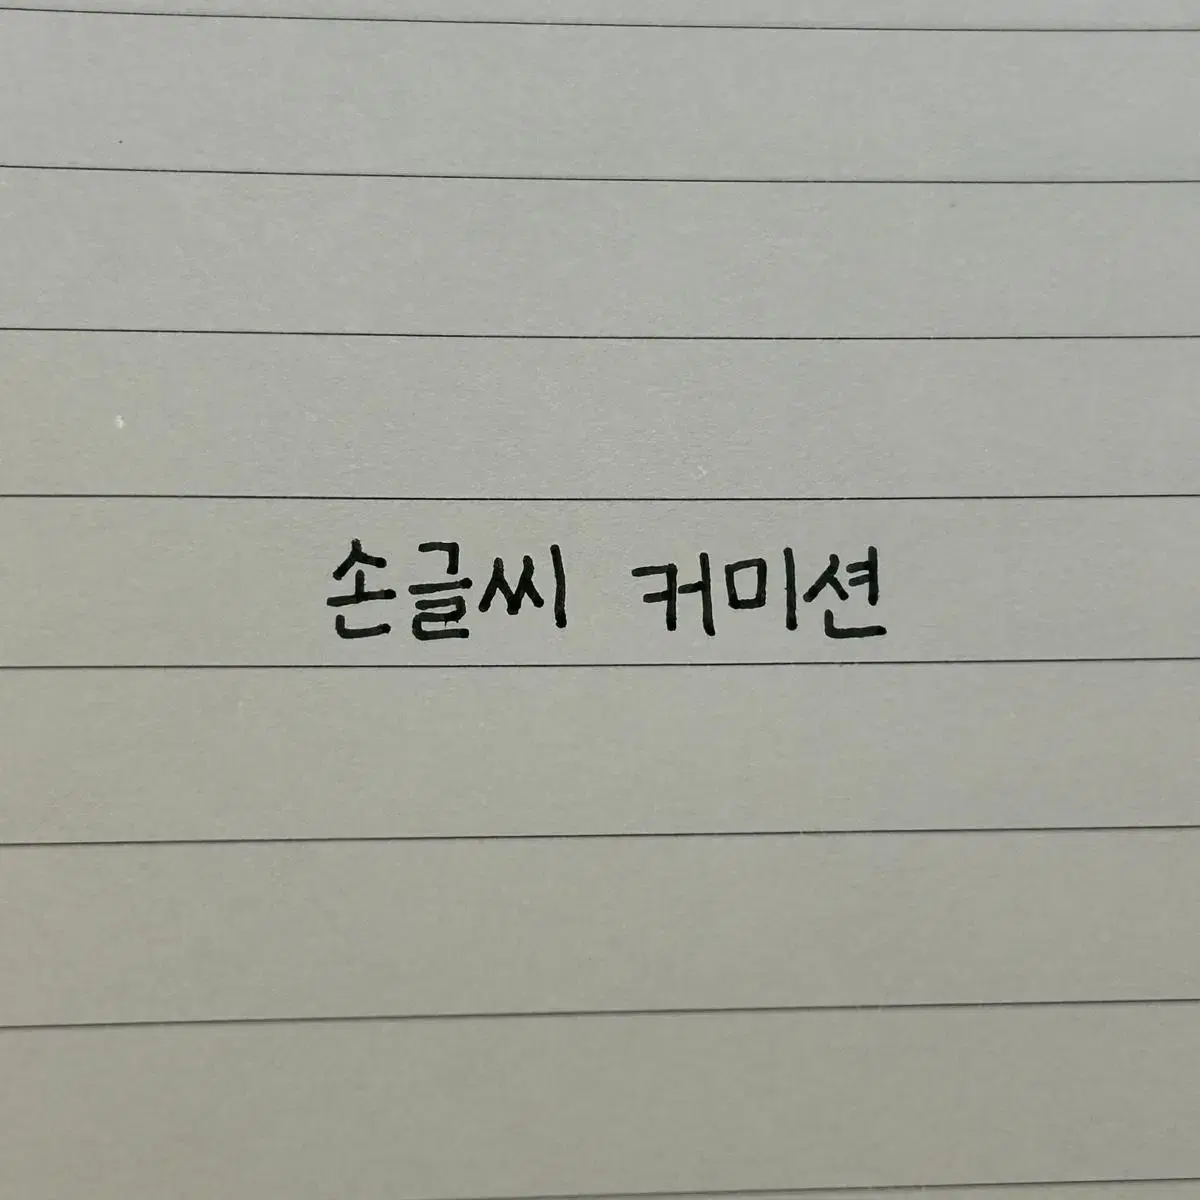 손글씨 커미션